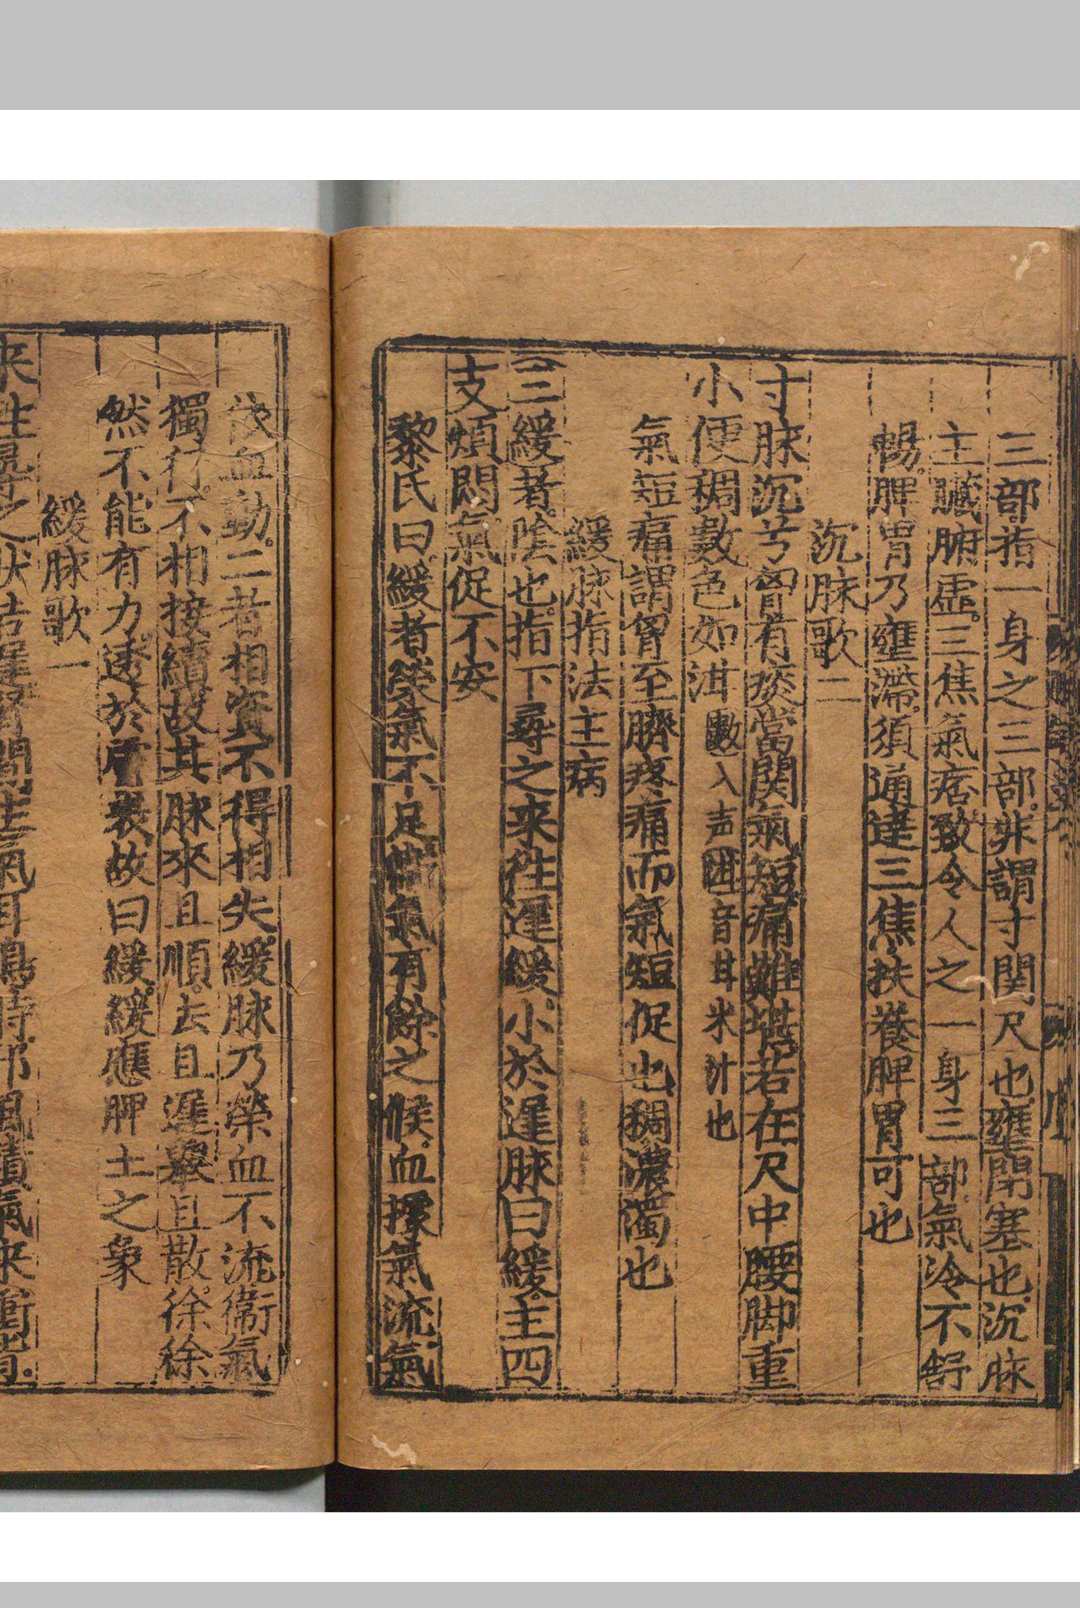 三部指一身之三部非謂寸関尺也壅閉塞也沉脉
主臟腑虛三焦氣痞致令人之一身三部氣冷不舒
暢脾胃乃壅滯須通達三焦扶養脾胃可也
沉脉歌二
寸脉沉兮胷有痰當関氣短痛難堪若在尺中腰脚重
小便稠數色如泔數入声泔音甘米汁也
氣短痛謂胷至臍疼痛而氣短促也稠濃濁也
緩脉指法主病
三緩者陰也指下尋之来往遲緩小於遲脉曰緩主四
支煩悶氣促不安
黎氏曰緩者榮氣不足衞氣有餘之候血㨿氣流氣
依血動二者相資不得相失緩脉乃榮血不流衞氣
獨行不相接續故其脉來且順去且遲舉且散徐徐
然不能有力透於膚表故曰緩緩應脾土之象
緩脉歌一